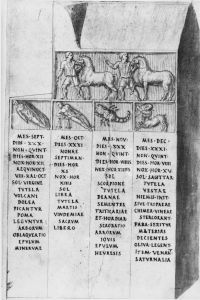 MES·SEPT·
DIES·XXX
NON·QVINT
DIES·HOR·XII
NOX·HOR·XII
AEQVINOCT
VIII·KAL·OCT
SOL·VIRGINE
TVTELA
VOLCANI
DOLEA
PICANTVR
POMA
LEGVNTVR
ARBORVM
OBLAQVEATIO
EPVLVM
MINERVAE
MES·OCT
DIES·XXXI
NONAE
SEPTIMAN
DIES·HOR
XS
NOX·HOR
XIIIS
SOL
LIBRA
TVTELA
MARTIS
VINDEMIAE
SACRVM
LIBERO
MES·NOV
DIES·XXX
NON·QVINT
DIES·HOR·VIIIS
NOX·HOR
SOL
SCORPIONE
TVTELA
DEANAE
SEMENTES
TRITICARIAE
ET·HORDIAR
SCROBATIO
ARBORVM
IOVIS
EPVLVM
HEVRESIS
MES·DEC·
DIES·XXXI·
NON·QVINT·
DIES·HOR·VIIII
NOX·HOR·XV
SOL·SAGITTAR
TVTELA
VESTAE
HIEMIS·INIT·
TROPAE
CHIMER·VINEAE
STERCORANT
FABA·SERITVR
MATERIAS
DEICIENTES
OLIVA·LEGENT
ITEM·VENANT
SATVRNALIA